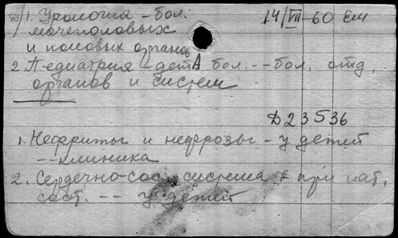 1. Урология - бол. 14/VII-60 Ем
мочеполовых
и половых органов
2. Педиатрия - дет. бол. -- бол. отд.
органов и систем
Д23536
1. Нефриты и нефрозы - у детей
-- клиника
2. Сердечно-сос. система - при пат.
сост. -- у детей